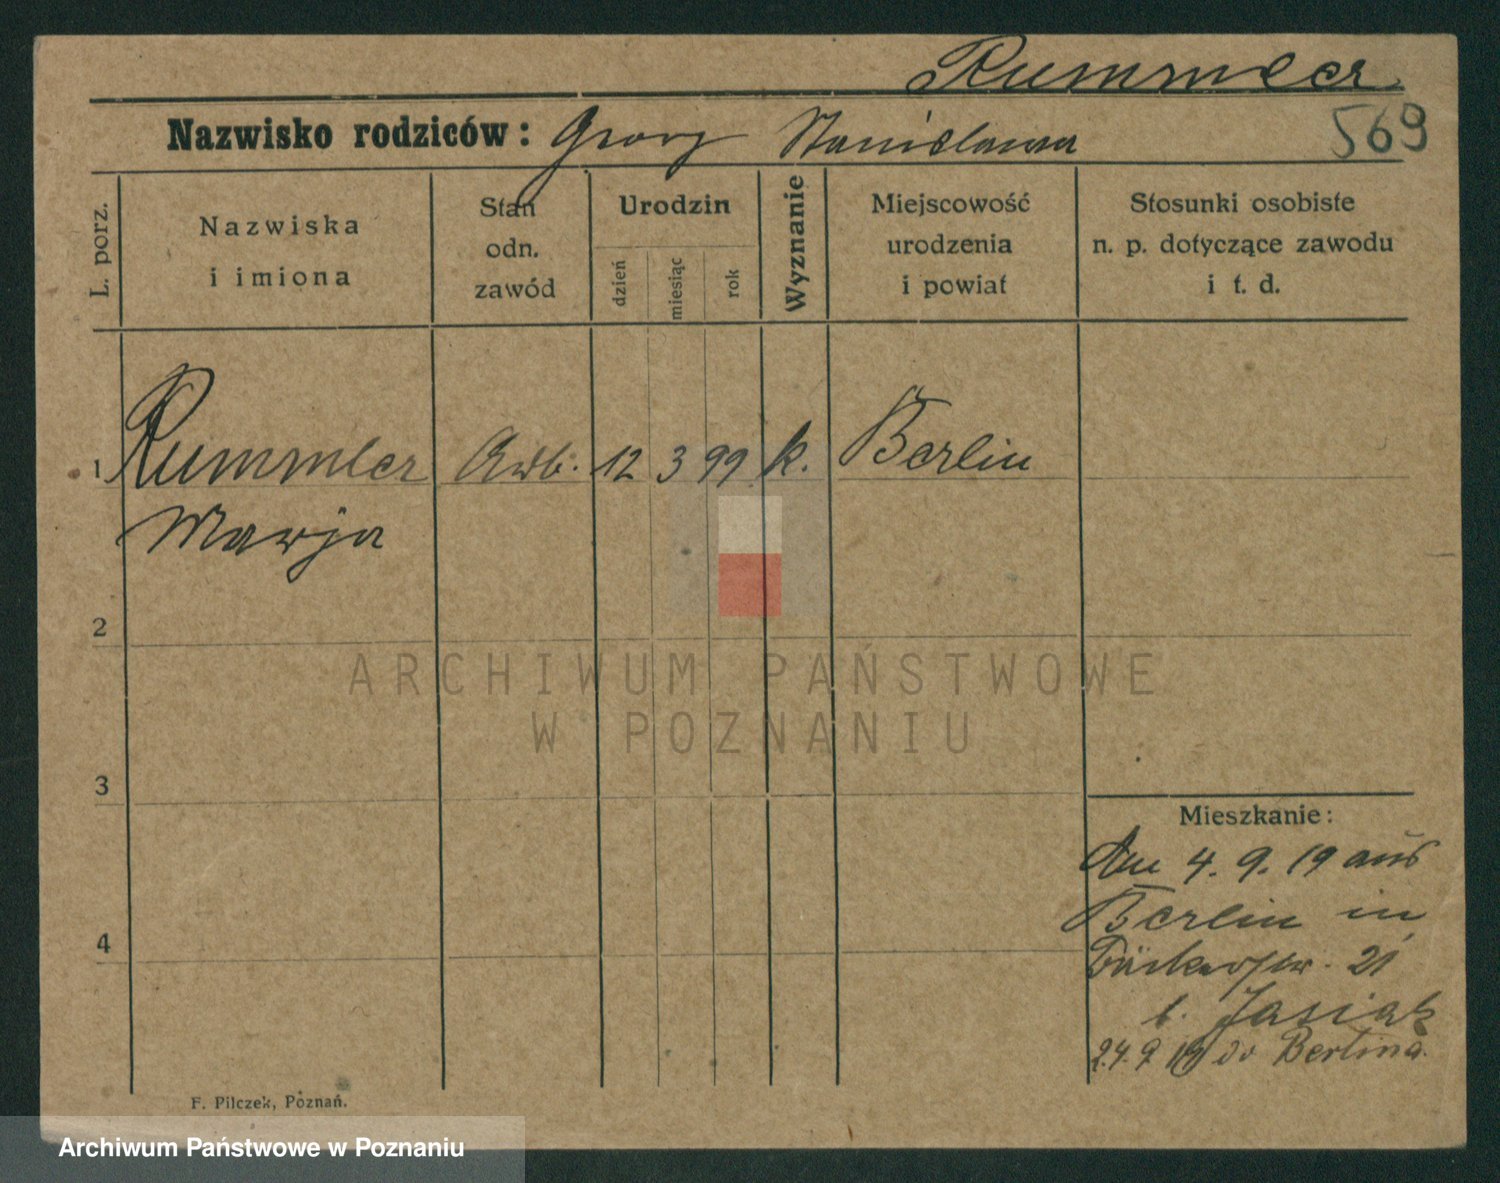 Rummler
Nazwisko rodziców: Georg Stanislawa 569
L. porz.
Nazwiska
i imiona
Stan
odn.
zawód
Urodzin
dzień
miesiąc
rok
Wyznanie
Miejscowość
urodzenia
i powiat
Stosunki osobiste
n. p. dotyczące zawodu
i t. d.
1 Rummler Arb. 12 3 99 k. Berlin
Marja
2
3
4
Mieszkanie:
Am 4. 9. 19 aus
Berlin in
Bäckerstr. 21
b. Jasiak
24. 9 19 do Berlina.
F. Pilczek, Poznań.
ARCHIWUM PAŃSTWOWE
W POZNANIU
Archiwum Państwowe w Poznaniu